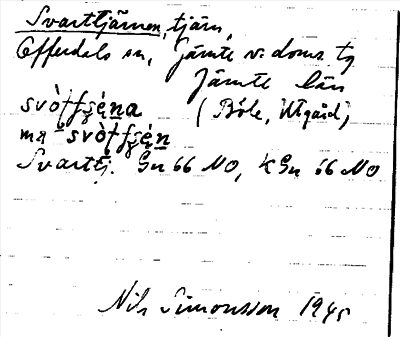 Svarttjärnen, tjärn,
Offerdals sn, Jämte v. doms. tg
Jämte län
svòtʃʂe̱na (Böle, Utgård)
ma svòtʃʂén
Svarttj. Gu 66 NO, KGu 66 NO
Nils Simonsson 1945